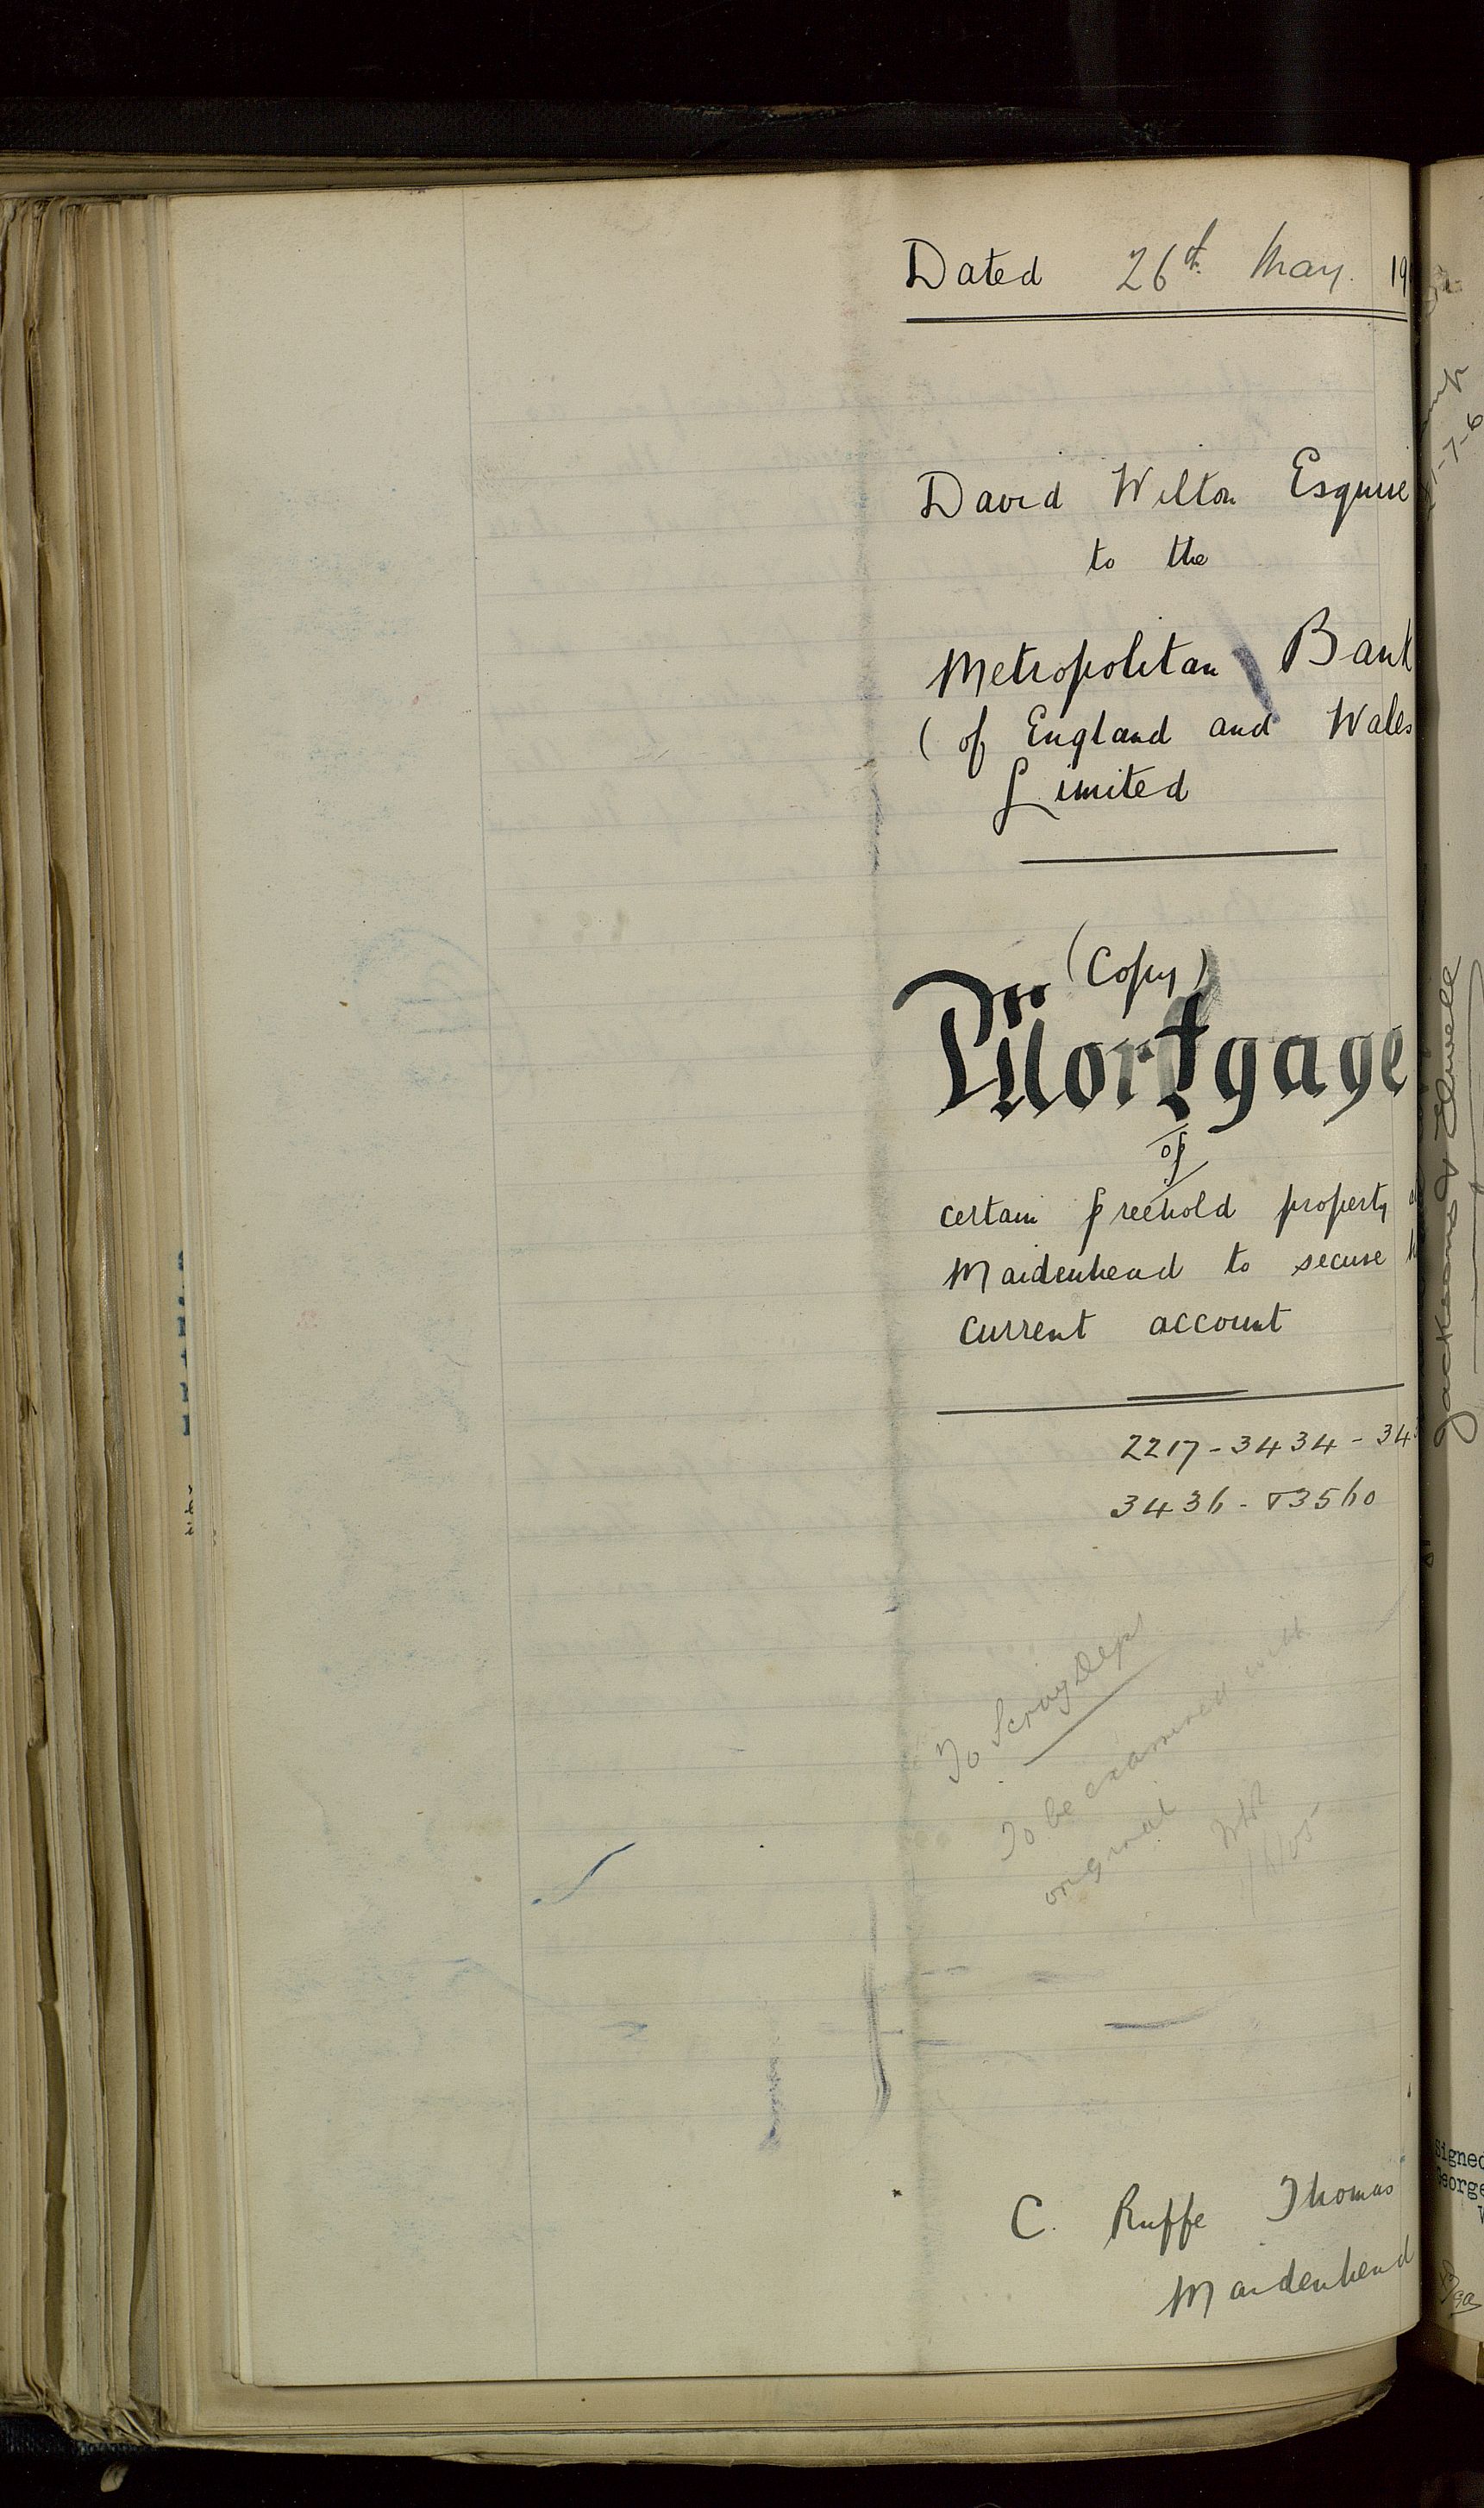 Dated 26th May. 19
David Wilton Esquire
to the
Metropolitan Bank
(of England and Wales
Limited
(Copy)
Mortgage
of
certain freehold property
Maidenhead to secure
current account
2217-3434-34
3436-&3560
To be examined with
original
C. Ruffe Thomas
Maidenhead
Jacksons & Elwell
Signed
George